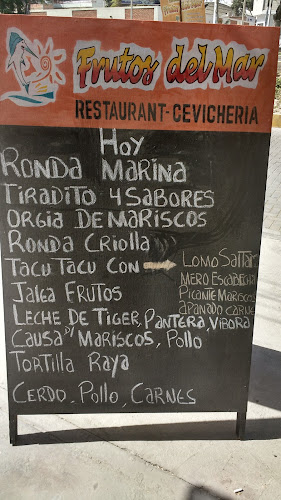 Frutos del Mar
RESTAURANT-CEVICHERIA
HOY
RONDA MARINA
TIRADITO 4 SABORES
ORGIA DE MARISCOS
RONDA CRIOLLA
TACU TACU CON → LOMO SALTAR
MERO ESCABECHE
PICANTE MARISCOS
APANADO CARNE
JALEA FRUTOS
LECHE DE TIGER, PANTERA, VIBORA
CAUSA D/ MARISCOS, POLLO
TORTILLA RAYA
CERDO. POLLO, CARNES